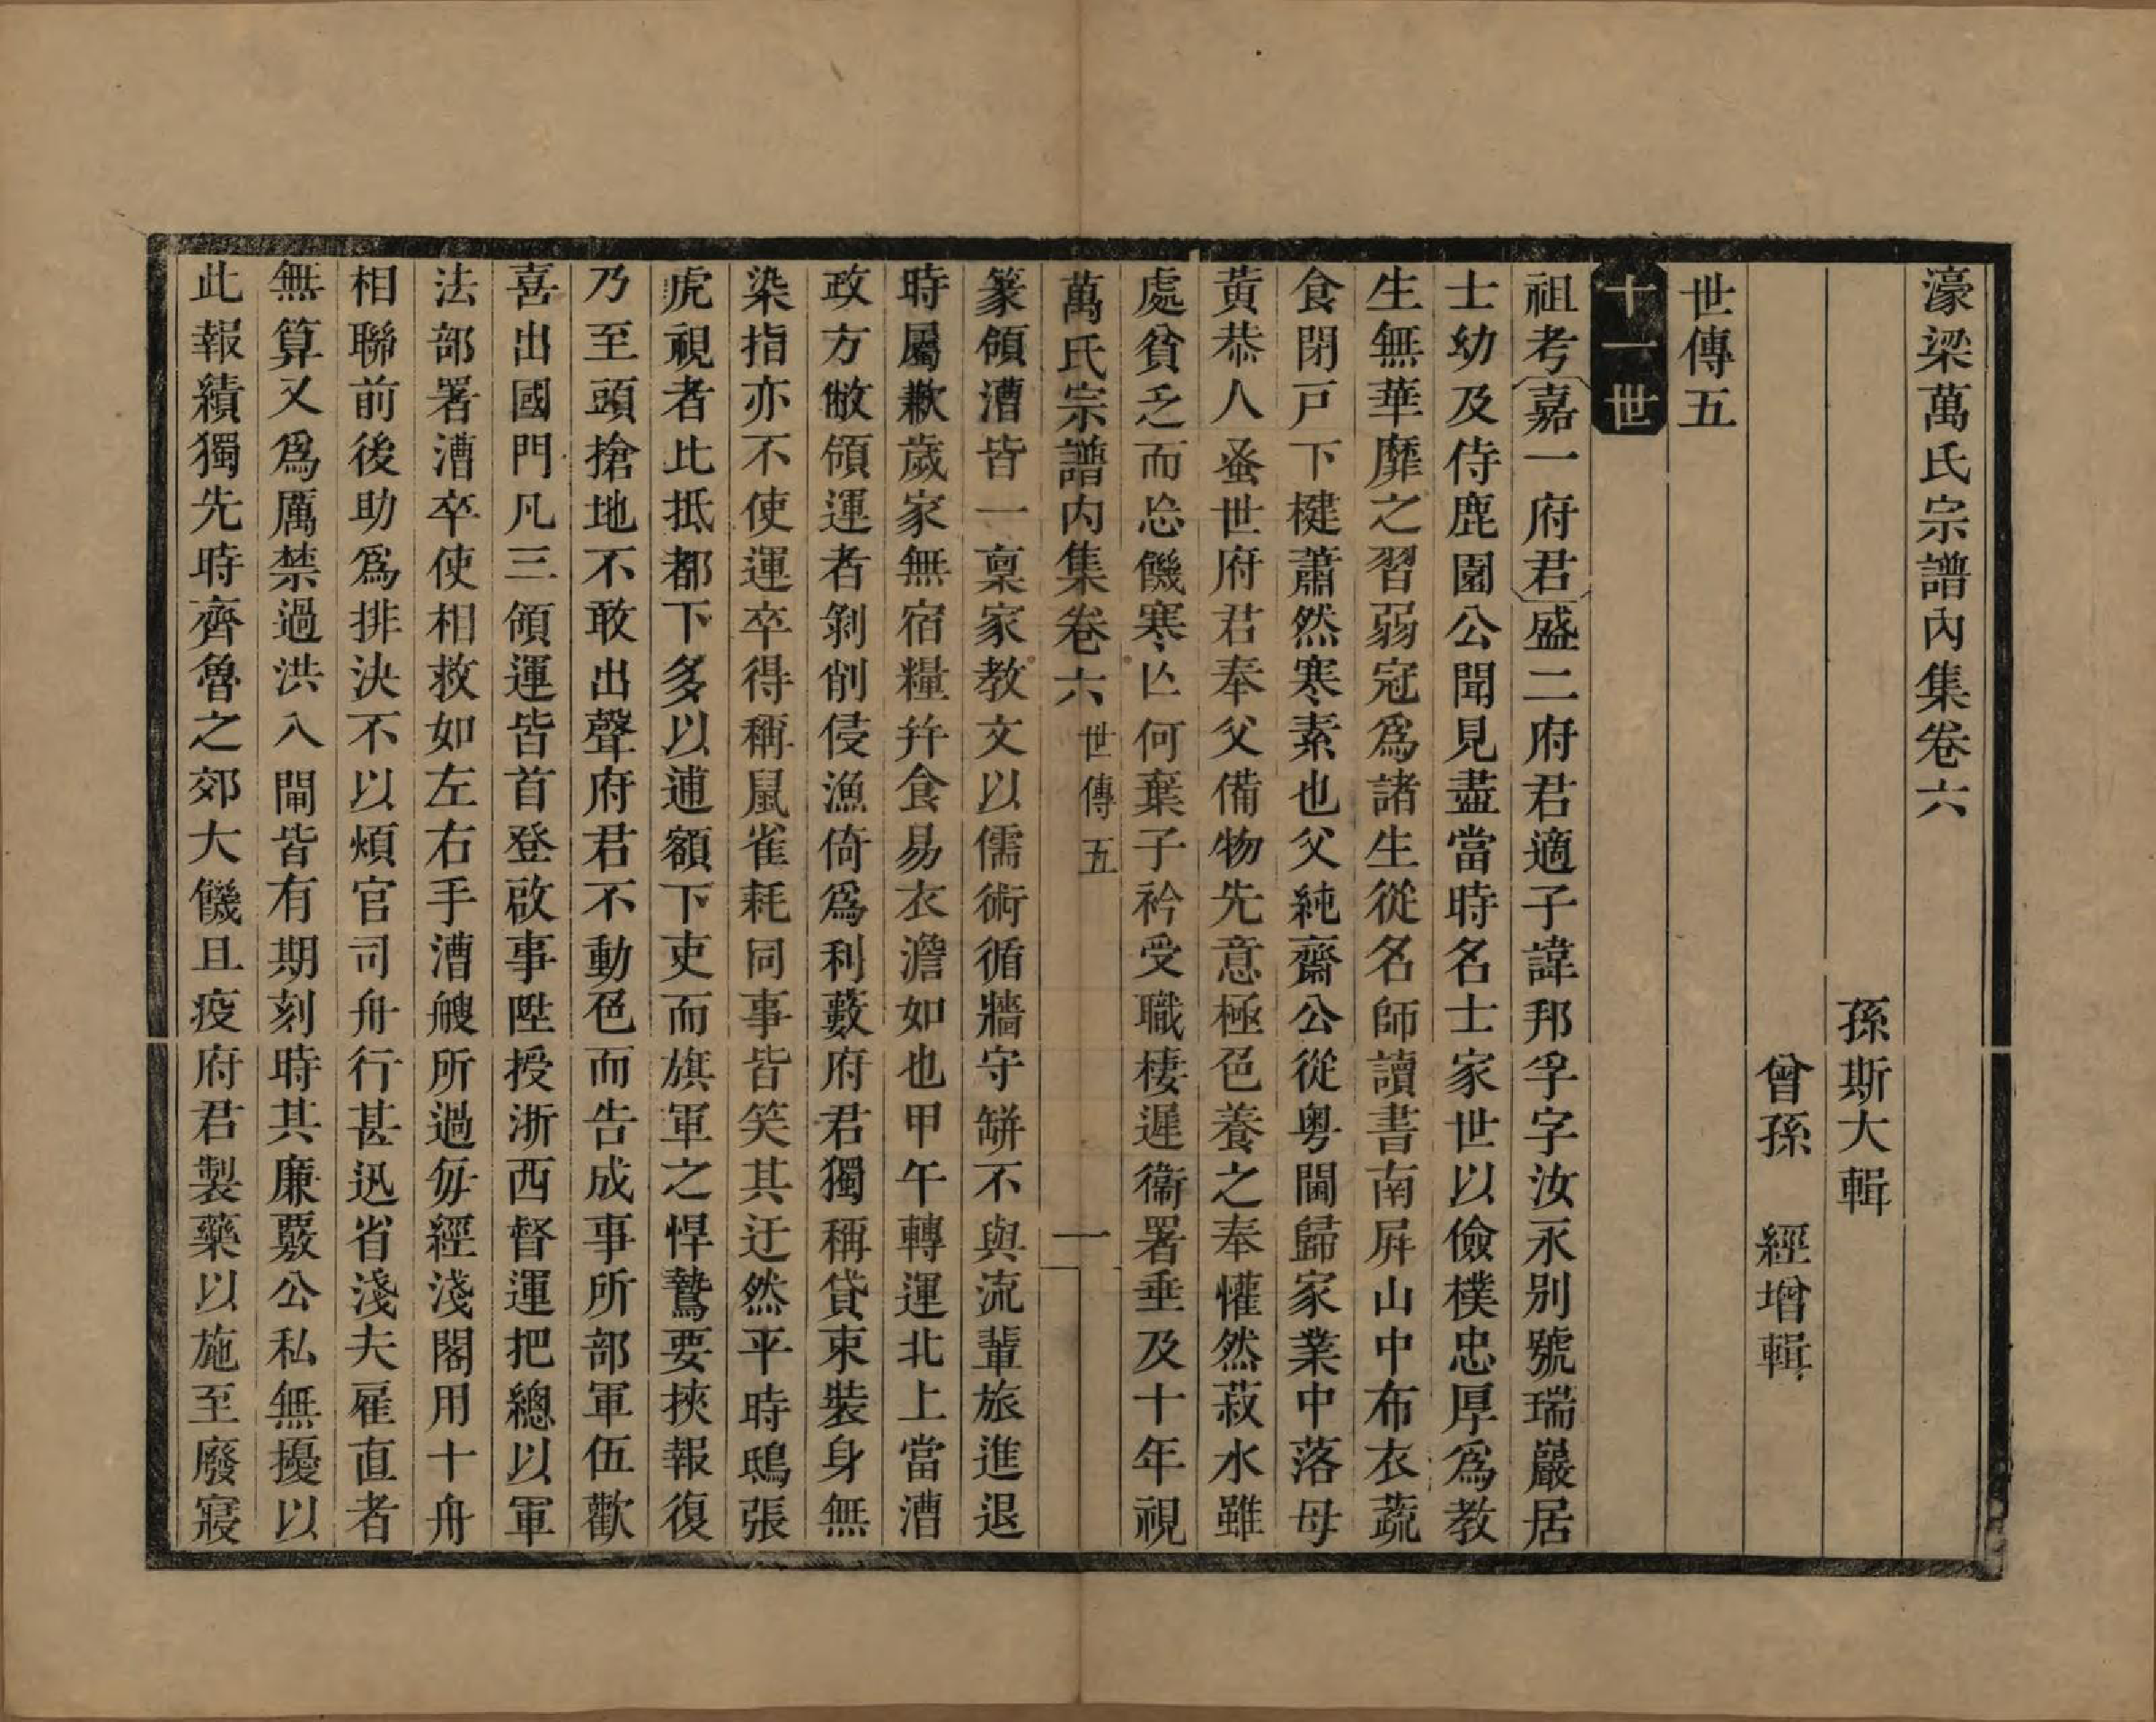 濠梁萬氏宗譜內集卷六
孫斯大輯
曾孫　經增輯
世傳五
十一世
祖考嘉一府君盛二府君適子諱邦孚字汝永别號瑞巖居
士幼及侍鹿園公聞見盡當時名士家世以儉樸忠厚爲教
生無華靡之習弱冠爲諸生從名師讀書南屛山中布衣蔬
食閉戸下楗蕭然寒素也父純齋公從粤閫歸家業中落母
黃恭人蚤世府君奉父備物先意極色養之奉懽然菽水雖
處貧乏而忘饑寒亾何棄子衿受職棲遲衞署垂及十年視
萬氏宗譜内集卷六　世傳五　一
篆領漕皆一稟家教文以儒術循牆守缾不與流輩旅進退
時屬歉歲家無宿糧幷食易衣澹如也甲午轉運北上當漕
政方敝領運者剝削侵漁倚爲利藪府君獨稱貸束裝身無
染指亦不使運卒得稱鼠雀耗同事皆笑其迂然平時鴟張
虎視者比抵都下多以逋額下吏而旗軍之悍鷙要挾報復
乃至頭搶地不敢出聲府君不動色而告成事所部軍伍歡
喜出國門凡三領運皆首登啟事陞授浙西督運把總以軍
法部署漕卒使相救如左右手漕艘所過毎經淺閣用十舟
相聯前後助爲排決不以煩官司舟行甚迅省淺夫雇直者
無算又爲厲禁過洪入閘皆有期刻時其廉覈公私無擾以
此報績獨先時齊魯之郊大饑且疫府君製藥以施至廢寢